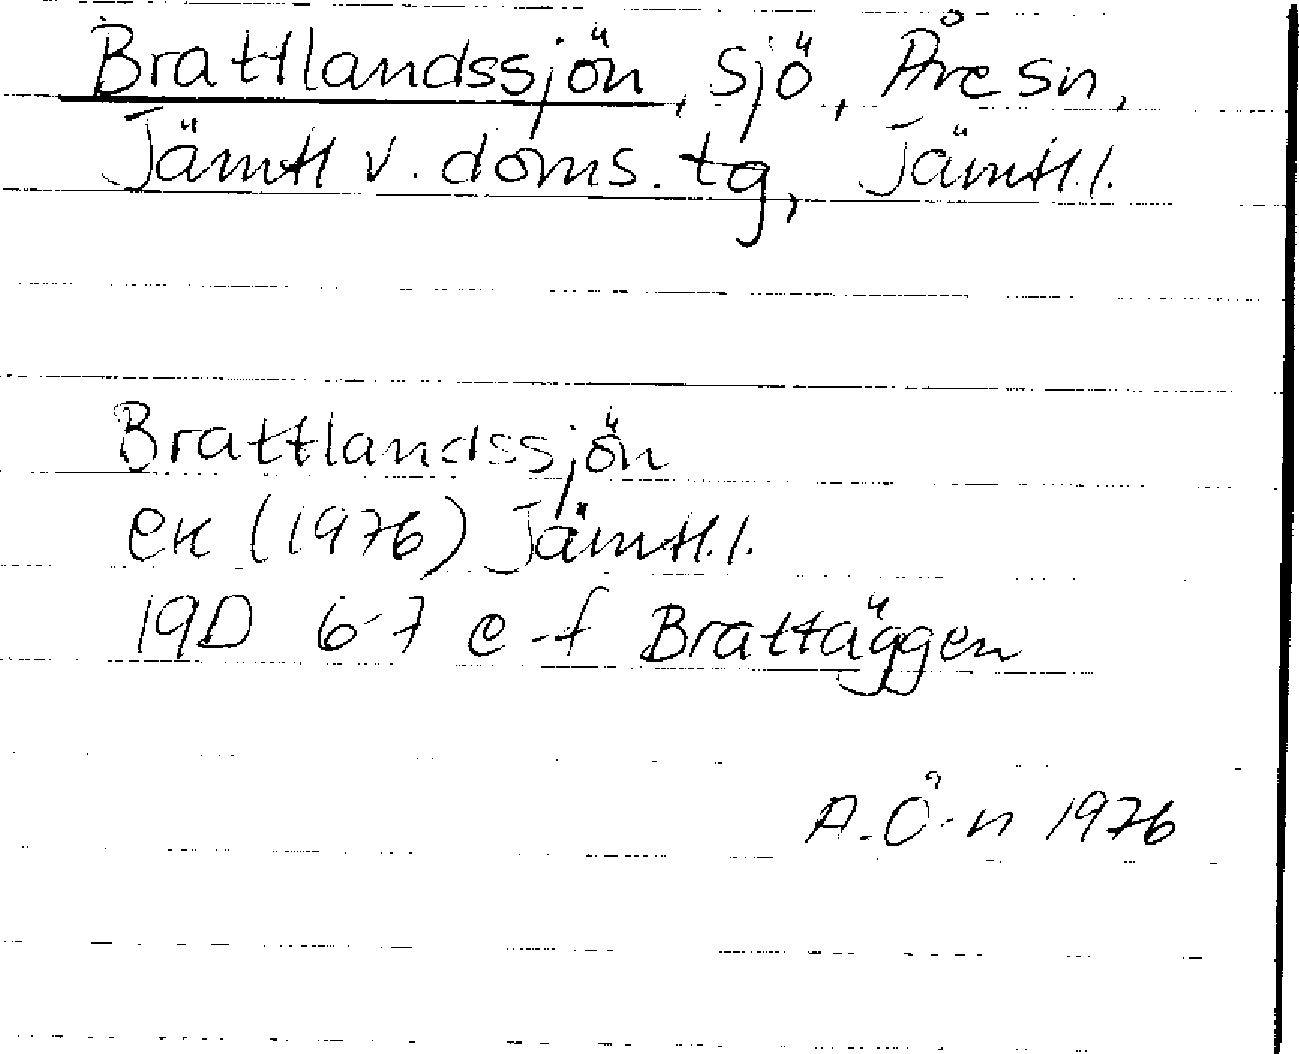 Brattlandssjön, sjö, Åre sn,
Jämtl v. doms. tg, Jämtl.l.
Brattlandssjön
ek (1976) Jämtl.l.
19D 6-7 e-f Brattäggen
A.Ö-n 1976